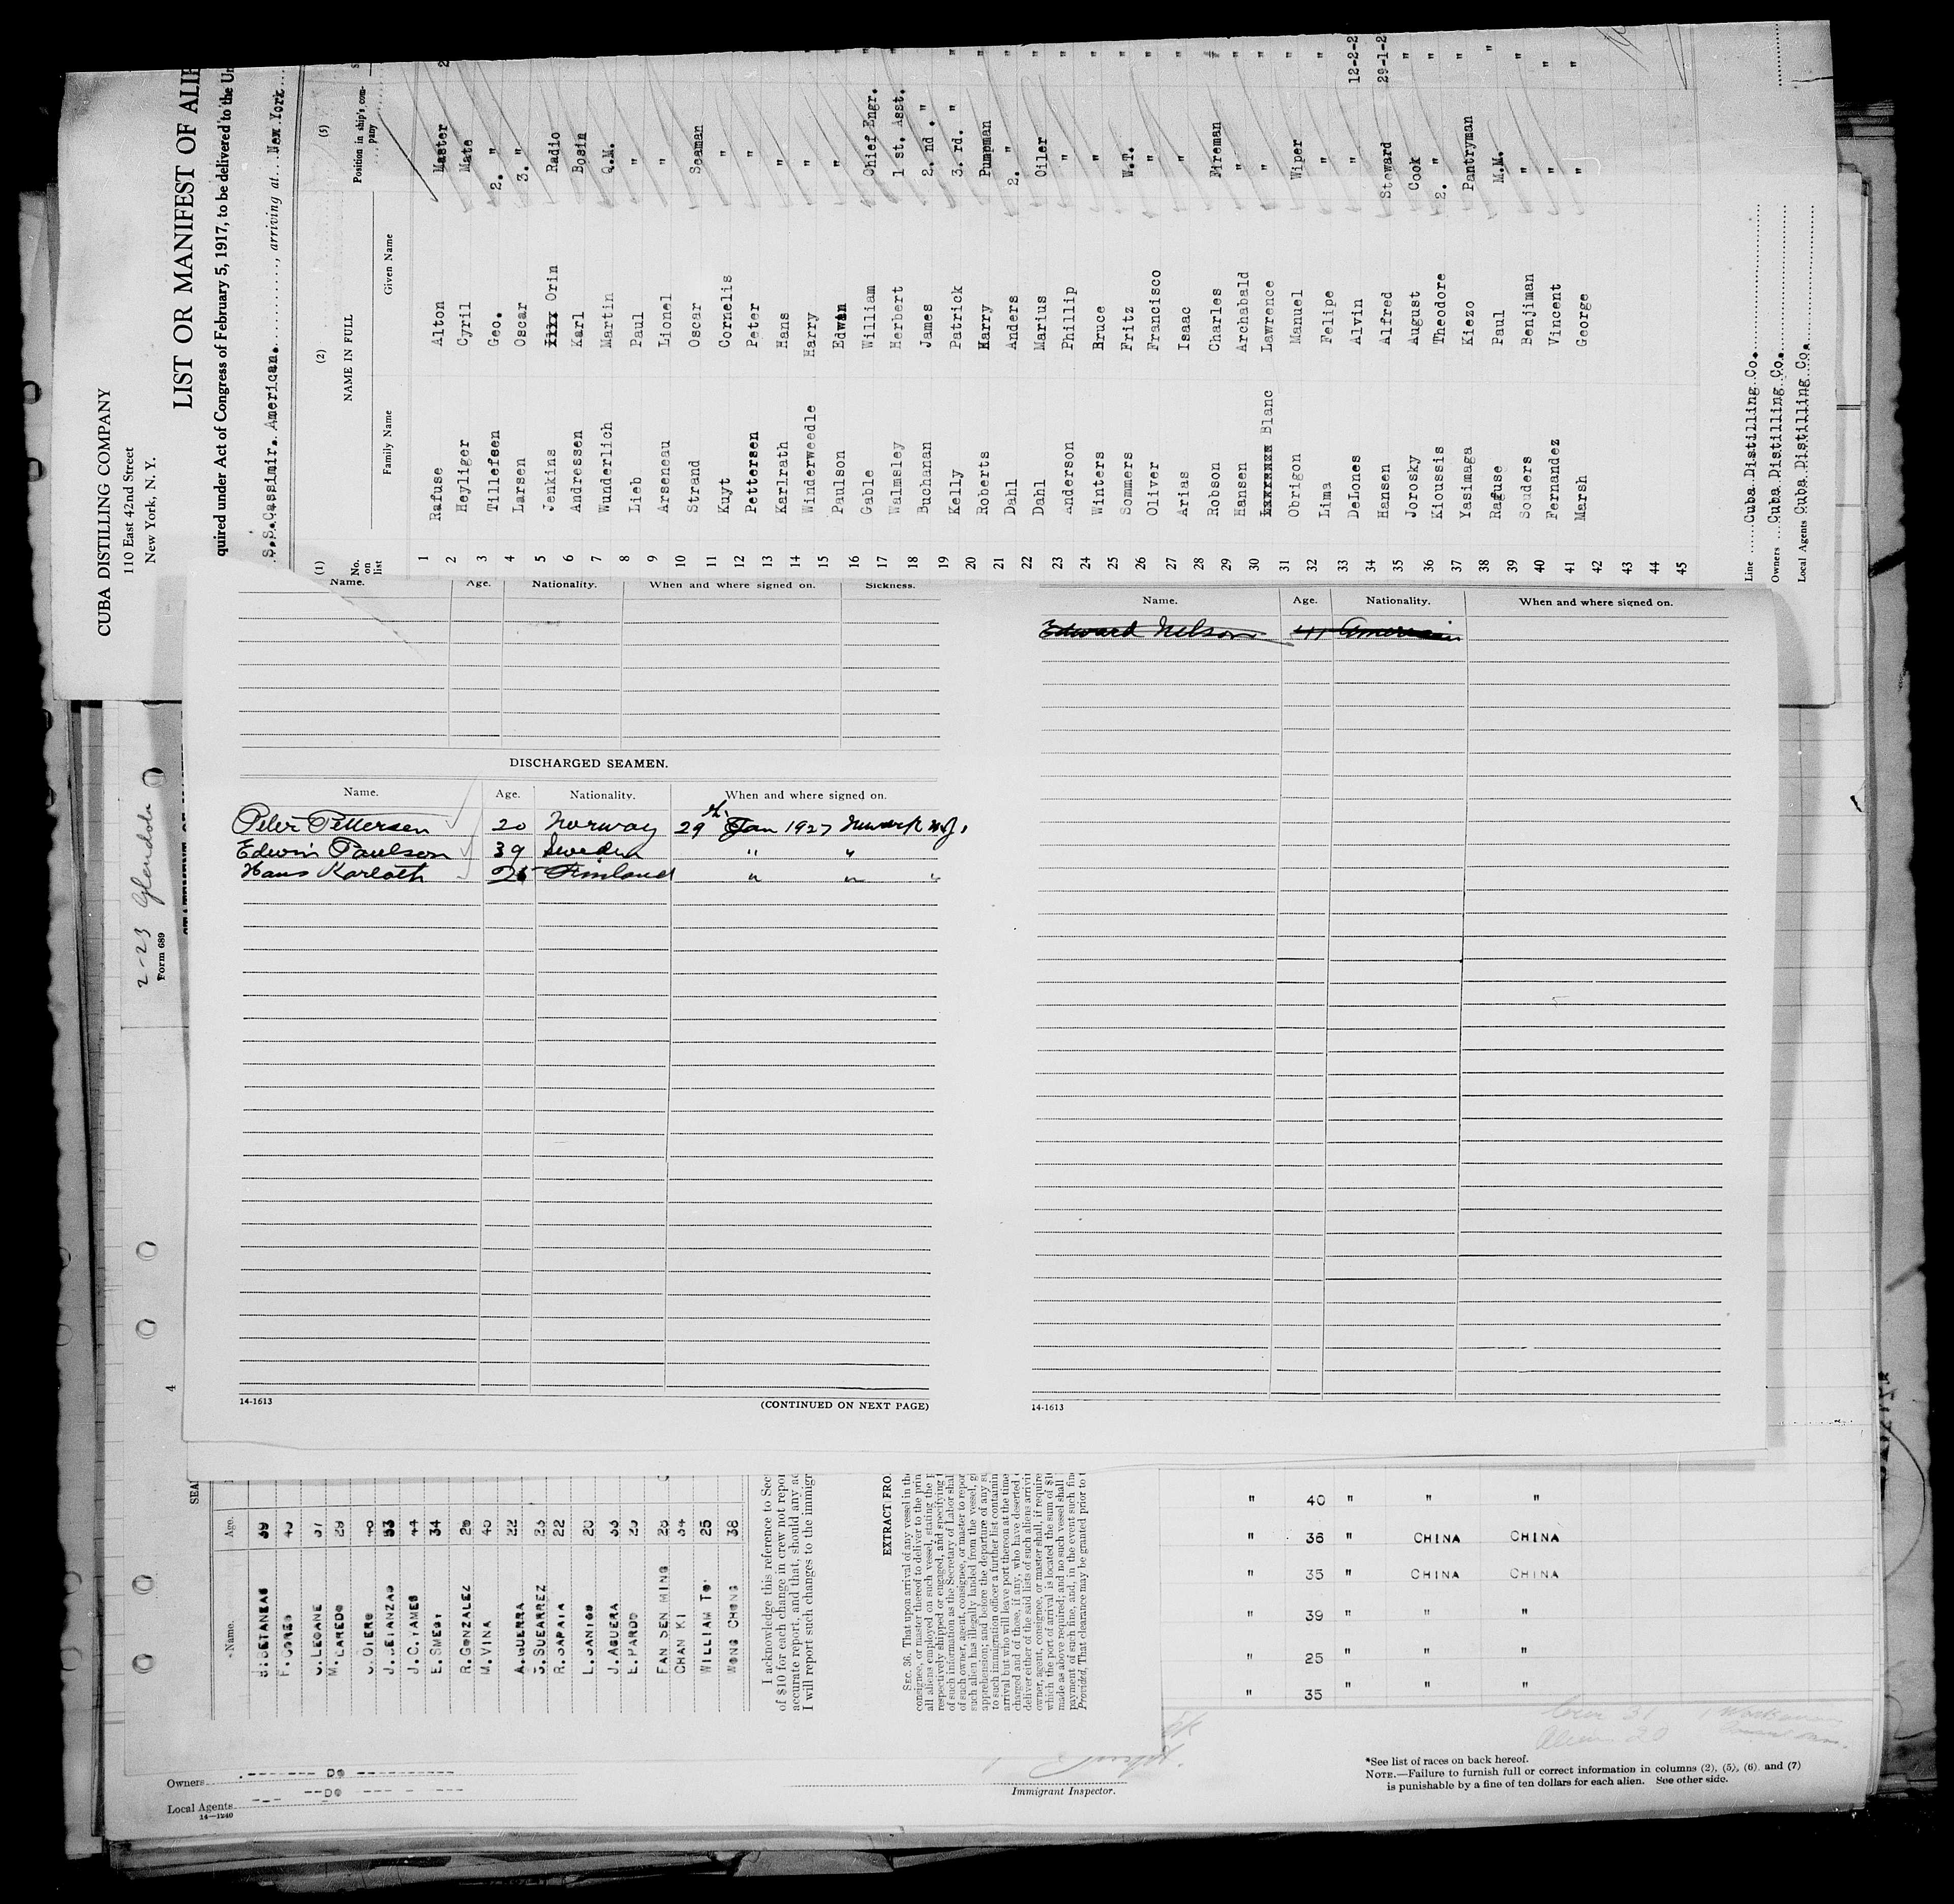 CUBA DISTILLING COMPANY
110 East 42nd Street
New York, N. Y.
LIST OR MANIFEST OF ALIE
quired under Act of Congress of February 5, 1917, to be delivered to the Un
S.S.Cassimir. American. , arriving at New York.
(1) (2) (5)
No. on list NAME IN FULL Position in ship's com-pany
Family Name Given Name
1 Rafuse Alton Master
2 Heyliger Cyril Mate
3 Tillefsen Geo. 2. "
4 Larsen Oscar 3. "
5 Jenkins Orin Radio
6 Andressen Karl Bosin
7 Wunderlich Martin Q.M.
8 Lieb Paul "
9 Arseneau Lionel "
10 Strand Oscar Seaman
11 Kuyt Cornelis "
12 Pettersen Peter "
13 Karlrath Hans "
14 Winderweedle Harry "
15 Paulson Edwin "
16 Gable William Chief Engr.
17 Walmsley Herbert 1 st. Asst.
18 Buchanan James 2. nd . "
19 Kelly Patrick 3. rd. "
20 Roberts Harry Pumpman
21 Dahl Anders 2. "
22 Dahl Marius Oiler
23 Anderson Phillip "
24 Winters Bruce "
25 Sommers Fritz W.T.
26 Oliver Francisco "
27 Arias Isaac "
28 Robson Charles Fireman
29 Hansen Archabald "
30 Blanc Lawrence "
31 Obrigon Manuel Wiper
32 Lima Felipe "
33 DeLones Alvin " 12-2-2
34 Hansen Alfred Steward 29-1-2
35 Jorosky August Cook "
36 Kioussis Theodore 2. " "
37 Yasimaga Kiezo Pantryman "
38 Raguse Paul M.M. "
39 Souders Benjiman " "
40 Fernandez Vincent " "
41 Marsh George " "
42
43
44
45
Line Cuba Distilling Co.
Owners Cuba Distilling Co.
Local Agents Cuba Distilling Co.
2-23 Glendola
Form 689
Name. Age. Nationality. When and where signed on. Sickness.
DISCHARGED SEAMEN.
Name. Age. Nationality. When and where signed on.
Peter Pettersen 20 Norway 29th Jan 1927 Newark N.J.
Edwin Paulson 39 Sweden " "
Hans Karlath 25 Finland " " "
14-1613 (CONTINUED ON NEXT PAGE)
Name. Age. Nationality. When and where signed on.
Edward Nelson 41 American
14-1613
4
SEA
Name. Age.
39
F.
M. LAREDO 29
J.C.JAMES 44
E. SMEST 34
R.GONZALEZ 26
M. VINA 40
A.GUERRA 22
S.SUEARREZ 23
R.SAPATA 22
J. AGUERA
E. PARDO
FAN SEN MING
CHAN KI 34
WILLIAM TO 25
WONG CHONG 38
I acknowledge this reference to Sec
of $10 for each change in crew not repor
accurate report, and that, should any ad
I will report such changes to the immigr
EXTRACT FRO
SEC. 36. That upon arrival of any vessel in the
consignee, or master thereof to deliver to the prin
all aliens employed on such vessel, stating the p
respectively shipped or engaged, and specifying t
of such information as the Secretary of Labor shal
of such owner, agent, consignee, or master to repor
such alien has illegally landed from the vessel, g
apprehension; and before the departure of any su
to such immigration officer a further list containin
arrival but who will leave port thereon at the time
charged and of those, if any, who have deserted
deliver either of the said lists of such aliens arrivi
owner, agent, consignee, or master shall, if require
which the port of arrival is located the sum of $10
made as above required; and no such vessel shall
payment of such fine, and, in the event such fine
Provided, That clearance may be granted prior to t
" 40 " " "
" 36 " CHINA CHINA
35 " CHINA CHINA
" 39 " " "
" 25 " " "
" 35 " " "
Owners DO
Local Agents DO
14-1240
Immigrant Inspector.
*See list of races on back hereof.
NOTE.—Failure to furnish full or correct information in columns (2), (5), (6) and (7)
is punishable by a fine of ten dollars for each alien. See other side.